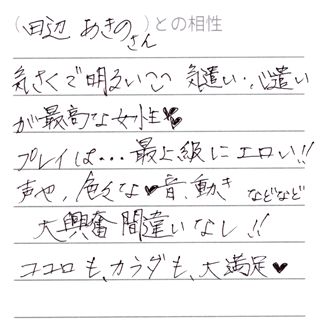 (田辺 あきのさん)との相性
気さくで明るい♡♡ 気遣い・心遣い
が最高な女性♥
プレイは・・・最上級にエロい!!
声や、色々な♥音、動き などなど
大興奮間違いなし!!
ココロも、カラダも、大満足♥